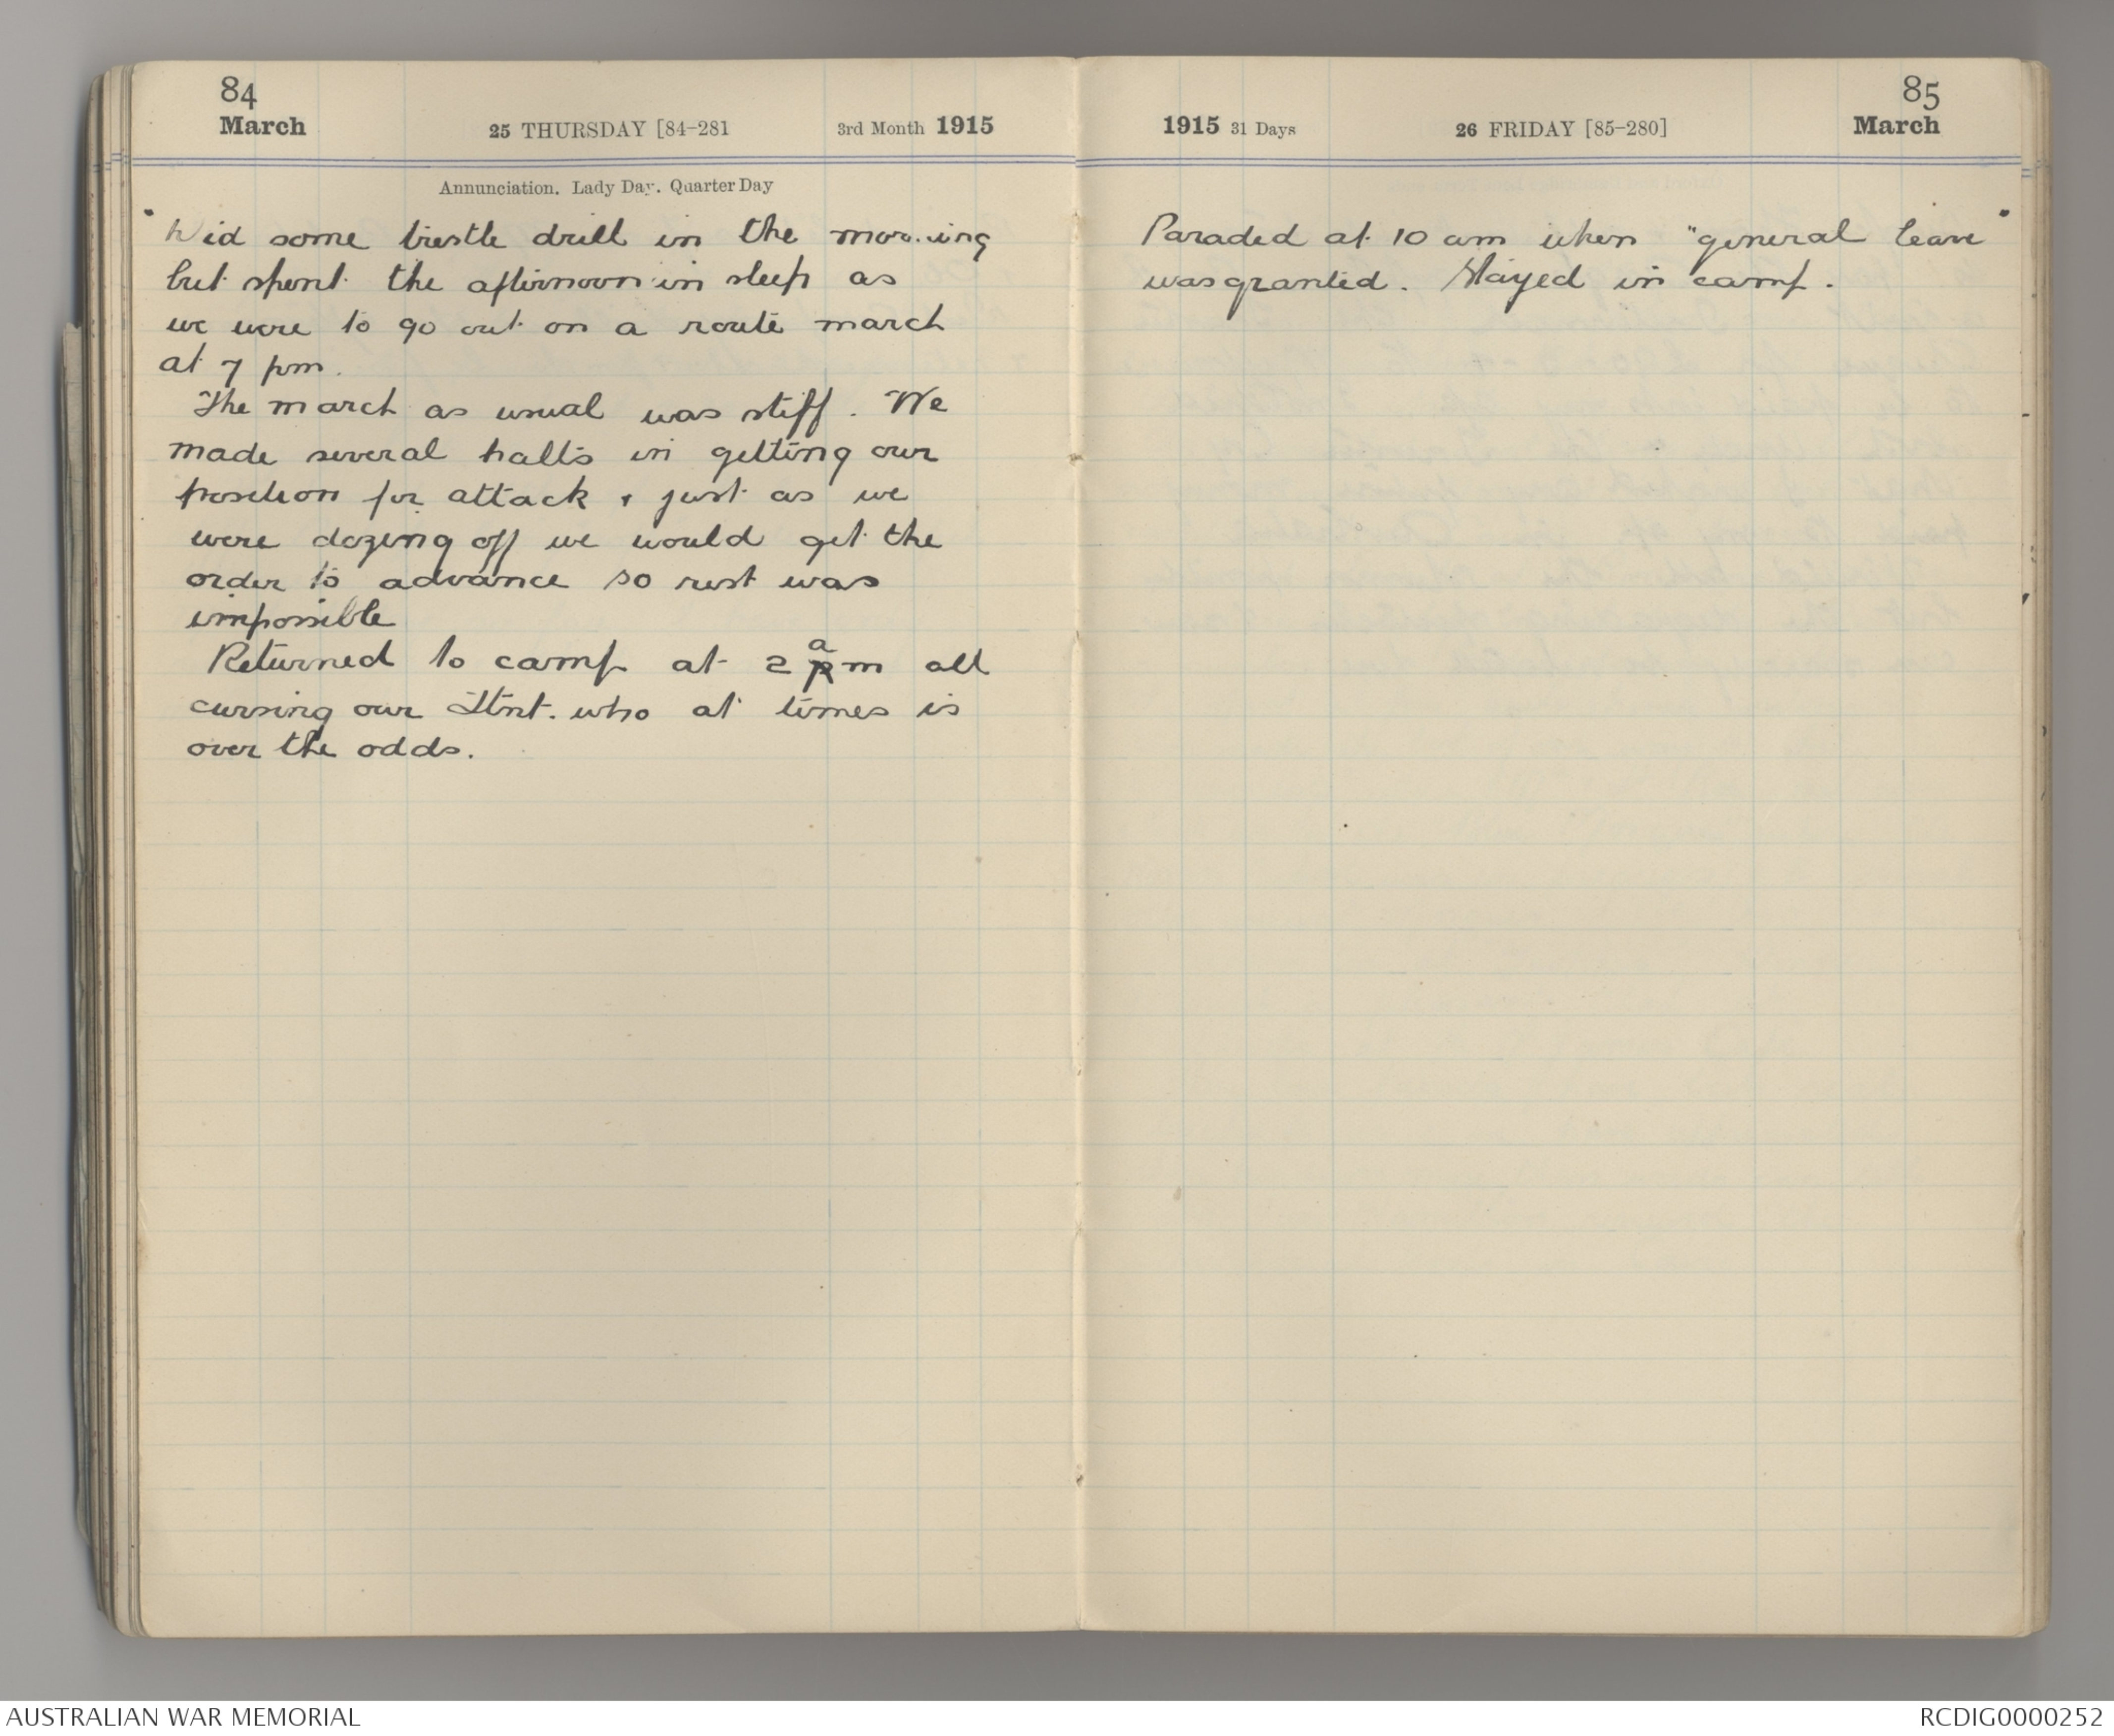 84
March
25 THURSDAY [84-281
3rd Month 1915
Annunciation. Lady Day. Quarter Day
Did some trestle drill in the morning
but spent the afternoon in sleep as
we were to go out on a route march
at 7 pm.
The march as usual was stiff. We
made several halts in getting our
position for attack & just as we
were dozing off we would get the
order to advance so rest was
impossible
Returned to camp at 2 am all
cursing our Ltnt. who at times is
over the odds.
85
1915 31 Days
26 FRIDAY [85-280]
March
Paraded at 10 am when "general leave"
was granted. Stayed in camp.
AUSTRALIAN WAR MEMORIAL
RCDIG0000252